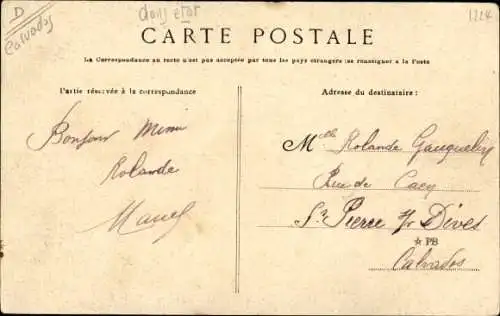 D
Calvados
dans état
CARTE POSTALE
La Correspondance au recto n'est pas acceptée par tous les pays étrangers (se renseigner à la Poste
Partie réservée à la correspondance
Bonjour Mimi
Rolande
Marcel
Adresse du destinataire :
Melle Rolande Gauquelin
Rue de Caen
St Pierre s/ Dives
☆ PB
Calvados